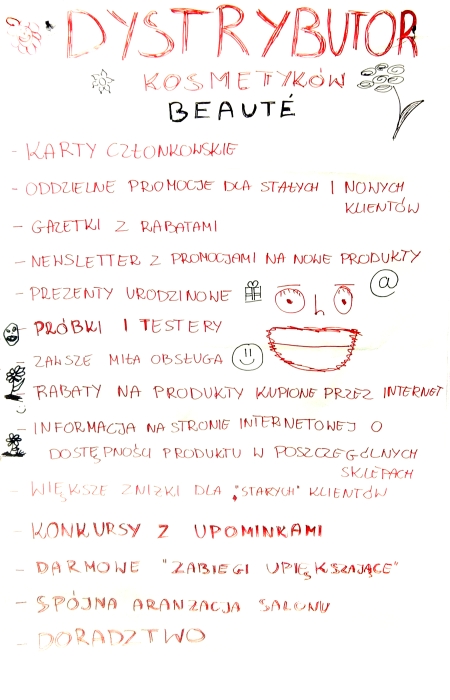 DYSTRYBUTOR
KOSMETYKÓW
BEAUTÉ
- KARTY CZŁONKOWSKIE
- ODDZIELNE PROMOCJE DLA STAŁYCH I NOWYCH
KLIENTÓW
- GAZETKI Z RABATAMI
- NEWSLETTER Z PROMOCJAMI NA NOWE PRODUKTY
- PREZENTY URODZINOWE @
- PRÓBKI I TESTERY
- ZAWSZE MIŁA OBSŁUGA
- RABATY NA PRODUKTY KUPIONE PRZEZ INTERNET
- INFORMACJA NA STRONIE INTERNETOWEJ O
DOSTĘPNOŚCI PRODUKTU W POSZCZEGÓLNYCH
SKLEPACH
- WIĘKSZE ZNIŻKI DLA "STARYCH" KLIENTÓW
- KONKURSY Z UPOMINKAMI
- DARMOWE "ZABIEGI UPIĘKSZAJĄCE"
- SPÓJNA ARANŻACJA SALONU
- DORADZTWO